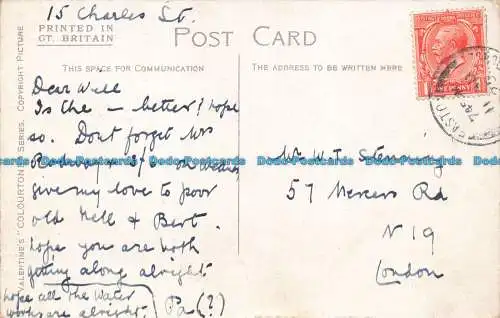 15 Charles St.
PRINTED IN
GT. BRITAIN
POST CARD
THIS SPACE FOR COMMUNICATION
THE ADDRESS TO BE WRITTEN HERE
COPYRIGHT PICTURE
VALENTINE'S "COLOURTONE" SERIES.
Dear Will
Is the — better? hope
so. Dont forget Mrs
3/6 on
give my love to poor
old Nell & Bert.
hope you are both
getting along alright
Pa (?)
hope all the Water
works are alright.
Mr W.T.
57 Mercers Rd
N 19
London
ONE PENNY
Postcards Postcards Postcards Postcards